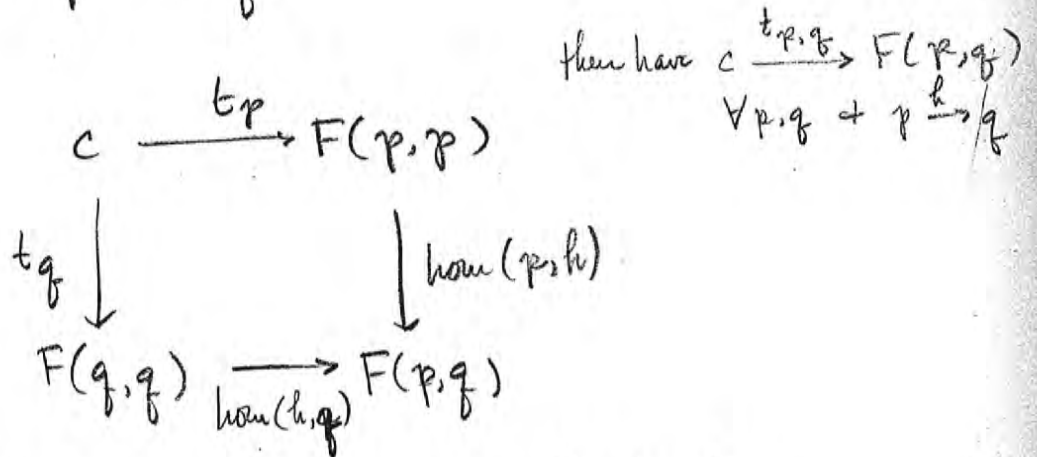 then have c —t_{p,q}→ F(p,q)
∀p,q + p —h→ q
t_p
c ⟶ F(p,p)
t_q hom(p,h)
F(q,q) ⟶ F(p,q)
hom(h,q)